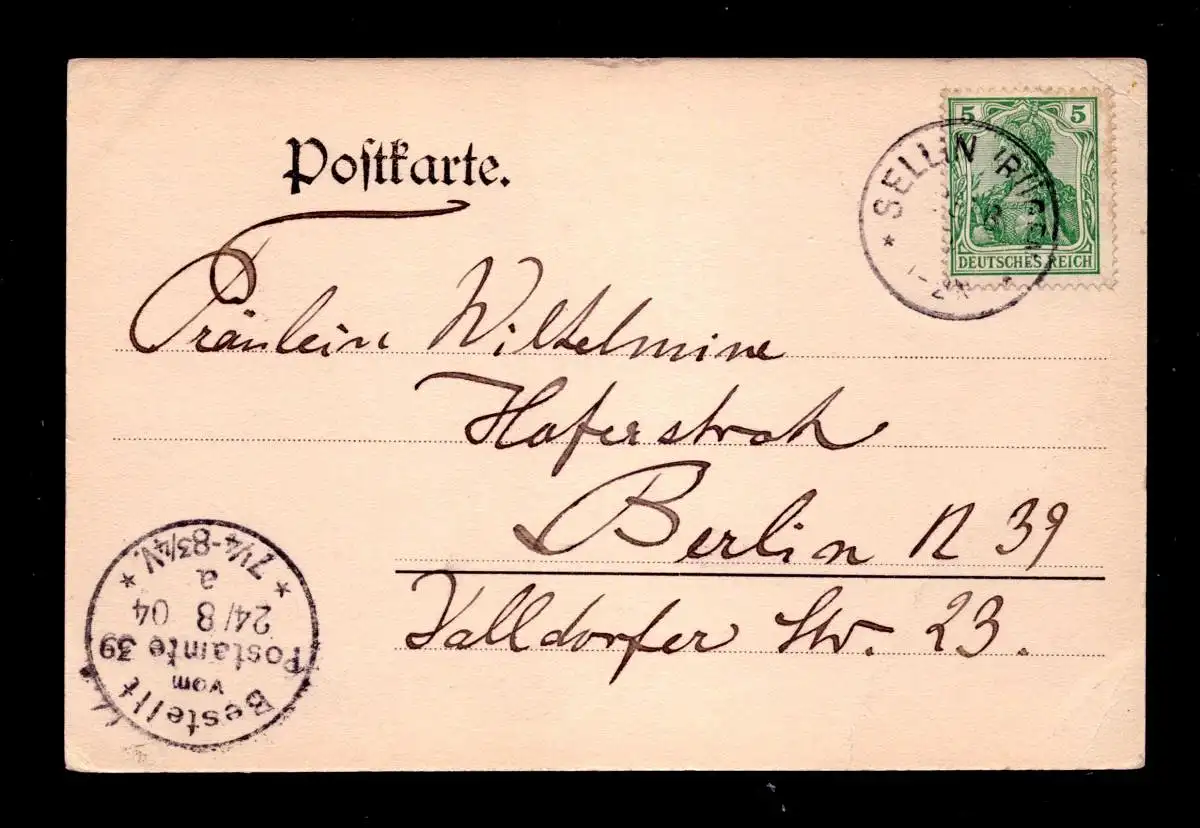 Postkarte.
5 5
DEUTSCHES REICH
SELLIN (RÜGEN)
Fräulein Wilhelmine
Haferstroh
Berlin N 39
Kalldorfer Str. 23.
Bestellt
vom
Postamte 39
24/8 04
a
7 1/4-8 3/4 V.